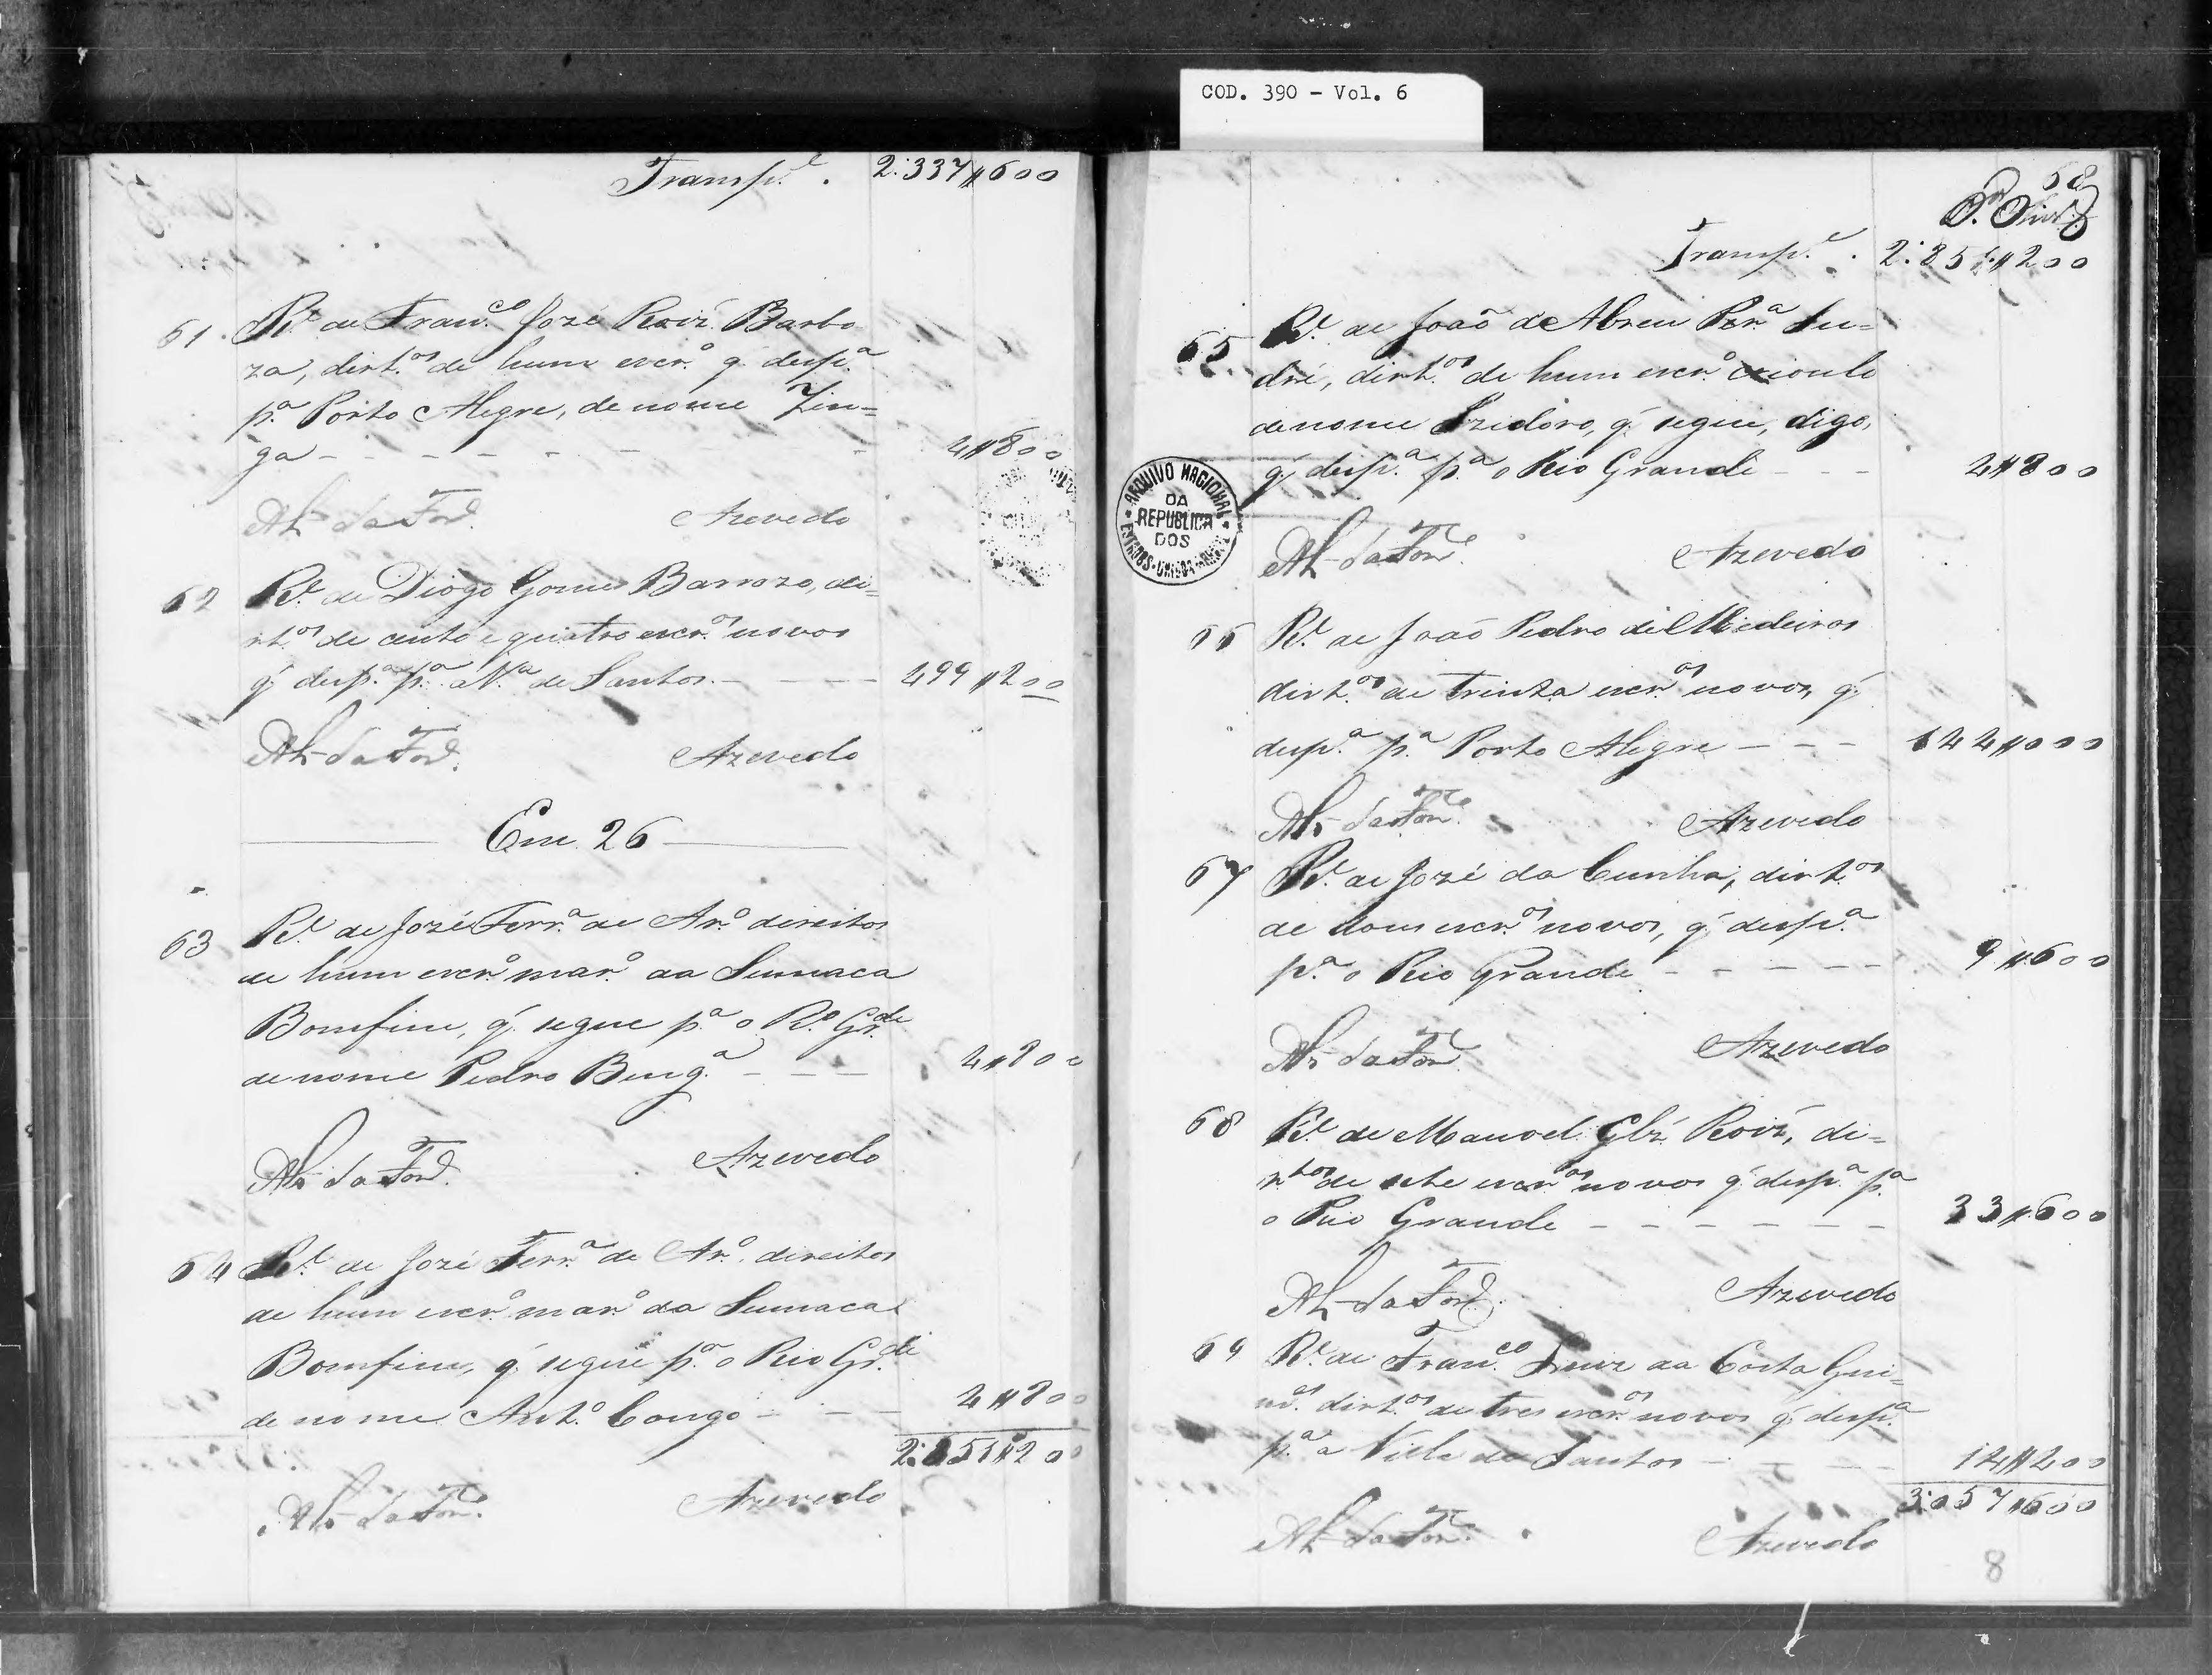 COD. 390 - Vol. 6
Transp.e . 2:337$600
61. R.e de Fran.co Jozé Roiz' Barbo
za, dirt.os de hum escr.o q' desp.a
p.a Porto Alegre, de nome Zin=
ga - - - - - - 4$800
da Fon.ca Azevedo
62 R.e de Diogo Gomes Barrozo, di=
rt.os de cento e quatro escr.os novos
q' desp.a p.a a V.a de Santos - - - - 499$200
da Fon.ca Azevedo
Em 26
63 R.e de Jozé Ferr.a de Ar.o direitos
de hum escr.o mar.o da Sumaca
Bomfim, q' segue p.a o R.o Gr.de
de nome Pedro Beng.a - - - 4$800
da Fon.ca Azevedo
64 R.e de Jozé Ferr.a de Ar.o direitos
de hum escr.o mar.o da Sumaca
Bomfim, q' segue p.a o Rio Gr.de
de nome Ant.o Congo - - - 4$800
2:851$200
da Fon.ca Azevedo
58
Transp.e . 2:851$200
65 R.e de João de Abreu Per.a Su=
dré, dirt.os de hum escr.o crioulo
de nome Izidoro, q' segue, digo,
q' desp.a p.a o Rio Grande - - - 4$800
ARQUIVO NACIONAL
DA
REPUBLICA
DOS
ESTADOS-UNIDOS
da Fon.ca Azevedo
66 R.e de João Pedro de Medeiros
dirt.os de trinta escr.os novos, q'
desp.a p.a Porto Alegre - - - 144$000
da Fon.ca Azevedo
67 R.e de Jozé da Cunha, dirt.os
de dous escr.os novos, q' desp.a
p.a o Rio Grande - - - - - 9$600
da Fon.ca Azevedo
68 R.e de Manoel Glz' Roiz', di=
rtos de sete escr.os novos q' desp.a p.a
o Rio Grande - - - - - - 33$600
da Fon.ca Azevedo
69 R.e de Fran.co Luiz da Costa Gui=
m.es dirt.os de tres escr.os novos q' desp.a
p.a a Villa de Santos - - - - 14$400
3:057$600
da Fon.ca Azevedo
8